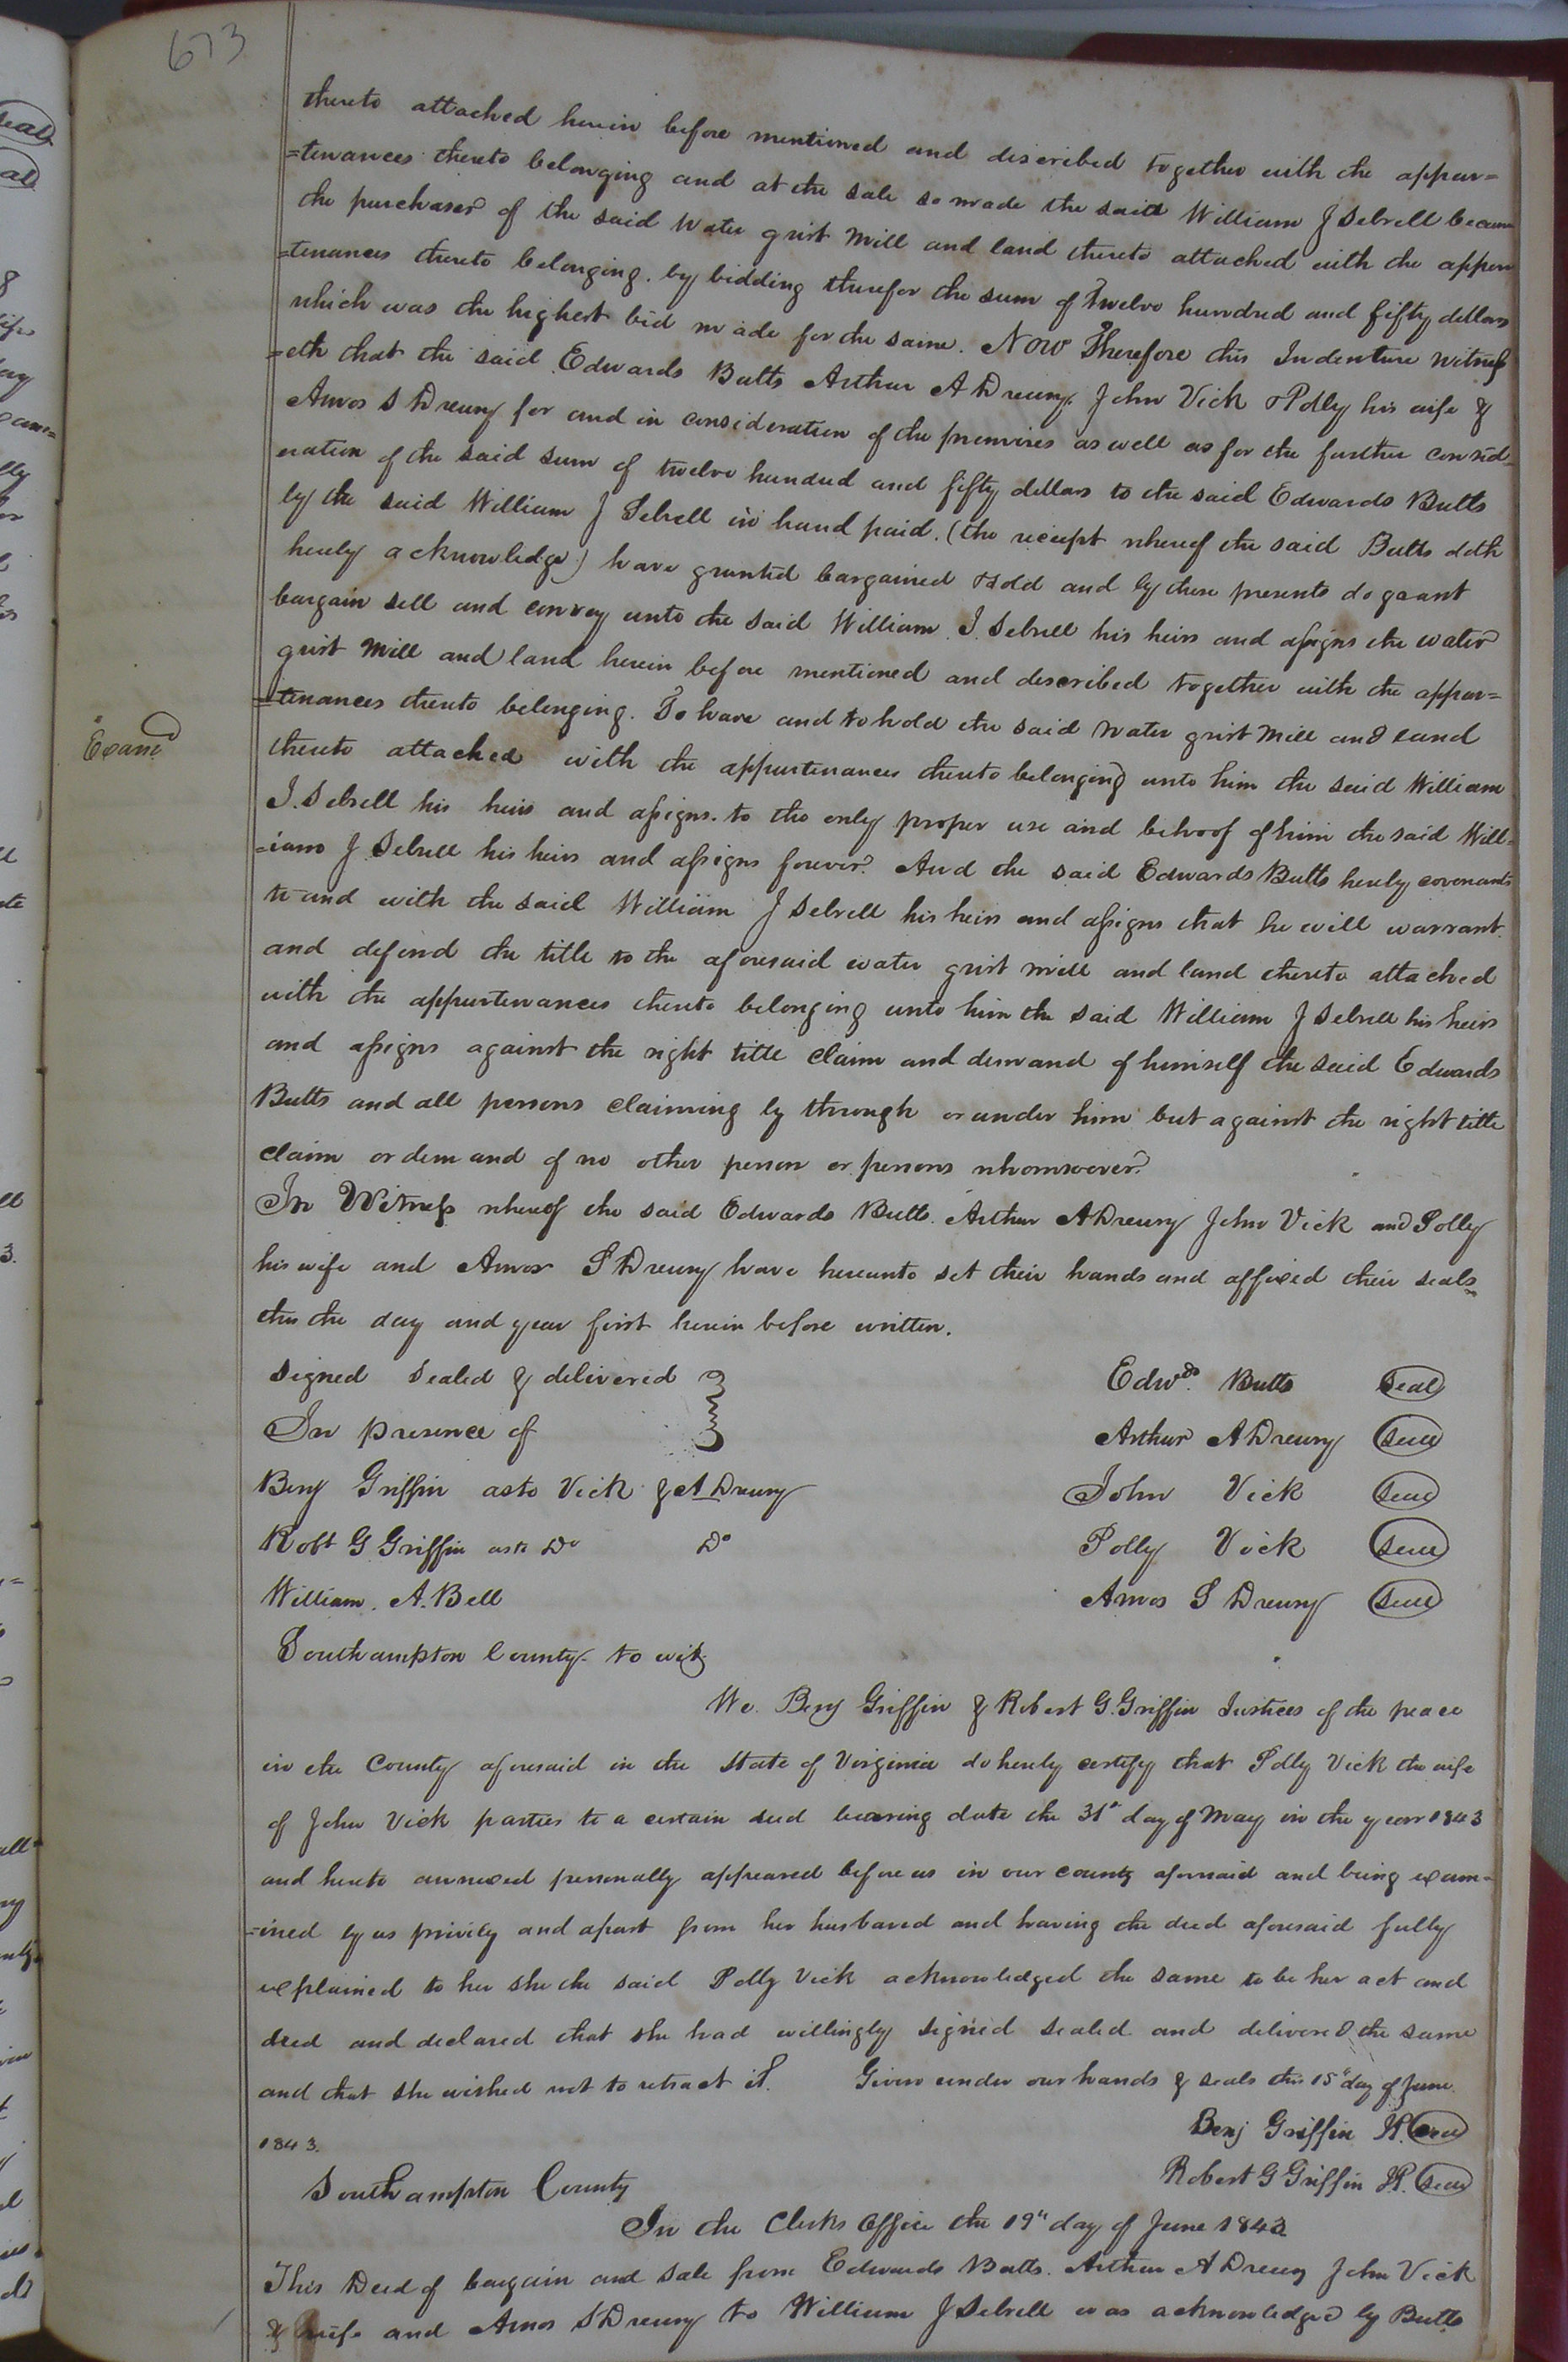 673
thereto attached herein before mentioned and described together with the appur=
=tenances thereto belonging and at the sale so made the said William J Sebrell became
the purchaser of the said Water grist Mill and land thereto attached with the appur
=tenances thereto belonging. by bidding therefor the sum of Twelve hundred and fifty dollars
which was the highest bid made for the same. Now Therefore this Indenture witness
=eth that the said Edwards Butts Arthur A Drewry John Vick & Polly his wife &
Amos S Drewry for and in consideration of the premises as well as for the further consid=
eration of the said sum of twelve hundred and fifty dollars to the said Edwards Butts
by the said William J Sebrell in hand paid. (the receipt whereof the said Butts doth
hereby acknowledge) have granted bargained & sold and by these presents do grant
bargain sell and convey unto the said William J. Sebrell his heirs and assigns the water
grist Mill and land herein before mentioned and described together with the appur=
=tenances thereto belonging. To have and to hold the said Water grist Mill and land
Examd
thereto attached with the appurtenances thereto belonging unto him the said William
J. Sebrell his heirs and assigns. to the only proper use and behoof of him the said Will=
=iam J Sebrell his heirs and assigns forever. And the said Edwards Butts hereby covenants
to and with the said William J Sebrell his heirs and assigns that he will warrant
and defend the title to the aforesaid water grist mill and land thereto attached
with the appurtenances thereto belonging unto him the said William J Sebrell his heirs
and assigns against the right title claim and demand of himself the said Edwards
Butts and all persons claiming by through or under him but against the right title
claim or demand of no other person or persons whomsoever.
In Witness whereof the said Edwards Butts. Arthur A Drewry John Vick and Polly
his wife and Amos S Drewry have hereunto set their hands and affixed their seals
this the day and year first herein before written.
Signed Sealed & delivered Edwds. Butts Seal
In presence of Arthur A Drewry Seal
Benj Griffin as to Vick & A Drewry John Vick Seal
Robt G Griffin as to Do Do Polly Vick Seal
William. A. Bell Amos S Drewry Seal
Southampton County. to wit
We. Benj Griffin & Robert G. Griffin Justices of the peace
in the County aforesaid in the State of Virginia do hereby certify that Polly Vick the wife
of John Vick parties to a certain deed bearing date the 31st day of May in the year 1843
and hereto annexed personally appeared before us in our county aforesaid and being exam=
=ined by us privily and apart from her husband and having the deed aforesaid fully
explained to her she the said Polly Vick acknowledged the same to be her act and
deed and declared that she had willingly signed sealed and delivered the same
and that she wished not to retract it. Given under our hands & seals this 15th day of June
1843. Benj Griffin JP. Seal
Robert G Griffin JP. Seal
Southampton County
In the Clerks Office the 19th day of June 1843
This Deed of bargain and sale from Edwards Butts. Arthur A Drewry John Vick
& wife and Amos S Drewry to William J Sebrell was acknowledged by Butts